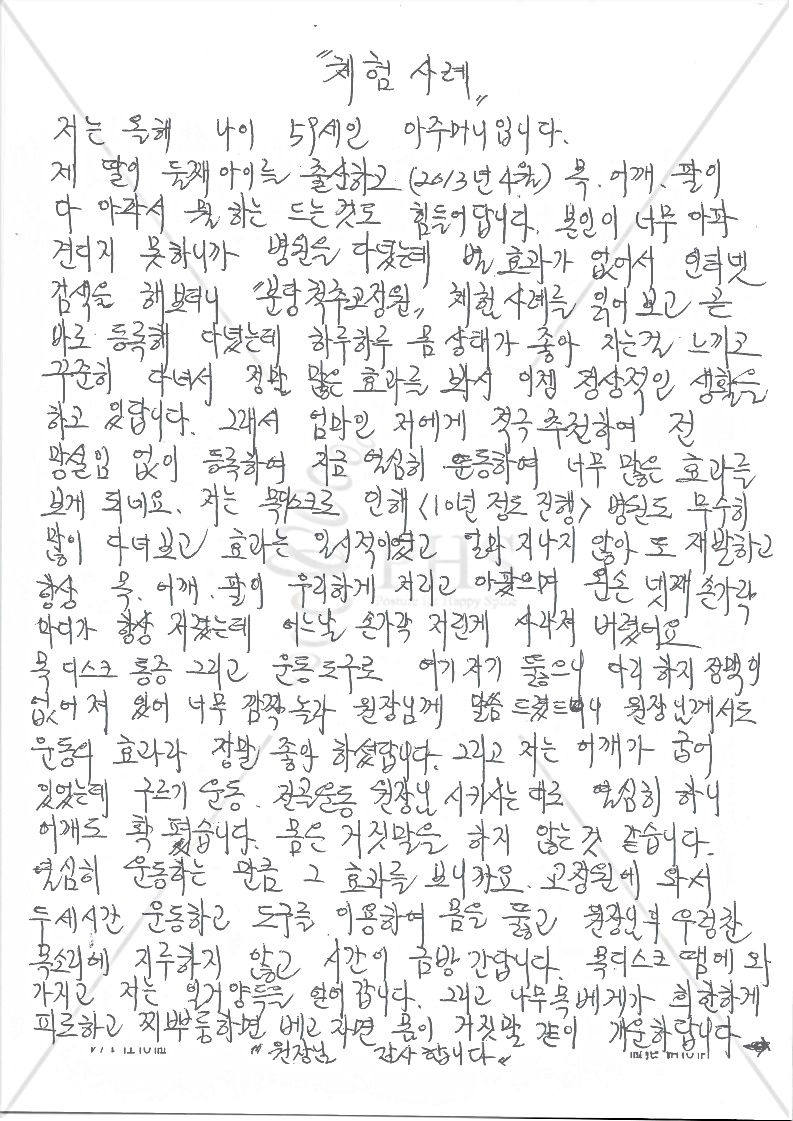 "체험 사례"
저는 올해 나이 59세인 아주머니입니다.
제 딸이 둘째아이를 출산하고 (2013년 4월) 목. 어깨. 팔이
다 아파서 뭘 하는 드는것도 힘들어답니다. 본인이 너무 아파
견디지 못하니까 병원을 다녔는데 별 효과가 없어서 인터넷
검색을 해보더니 "분당척추교정원" 체험사례를 읽어보고 곧
바로 등록해 다녔는데 하루하루 몸 상태가 좋아 지는걸 느끼고
꾸준히 다녀서 정말 많은 효과를 봐서 이젠 정상적인 생활을
하고 있답니다. 그래서 엄마인 저에게 적극추천하여 전
망설임 없이 등록하여 지금 열심히 운동하여 너무 많은 효과를
보게 되네요. 저는 목디스크로 인해 <10년 정도 진행> 병원도 무수히
많이 다녀보고 효과는 일시적이였고 얼마 지나지 않아 또 재발하고
항상 목. 어깨. 팔이 우리하게 저리고 아팠으며 왼손 넷째 손가락
마디가 항상 저렸는데 어느날 손가락 저린게 사라져 버렸어요
목 디스크 통증 그리고 운동도구로 여기 저기 뚫으니 다리 하지정맥이
없어져 있어 너무 깜짝 놀라 원장님께 말씀 드렸드니 원장님께서도
운동의 효과라 정말 좋아 하셨답니다. 그리고 저는 어깨가 굽어
있었는데 구르기 운동. 전굴운동 원장님 시키시는대로 열심히 하니
어깨도 확 폈습니다. 몸은 거짓말을 하지 않는것 같습니다.
열심히 운동하는 만큼 그 효과를 보니까요. 교정원에 와서
두세시간 운동하고 도구를 이용하여 몸을 뚫고 원장님의 우렁찬
목소리에 지루하지 않고 시간이 금방 간답니다. 목디스크 땜에 와
가지고 저는 일거양득을 얻어갑니다. 그리고 나무목베게가 희한하게
피로하고 찌뿌둥하면 베고 자면 몸이 거짓말 같이 개운하답니다
"원장님 감사합니다"
PHS